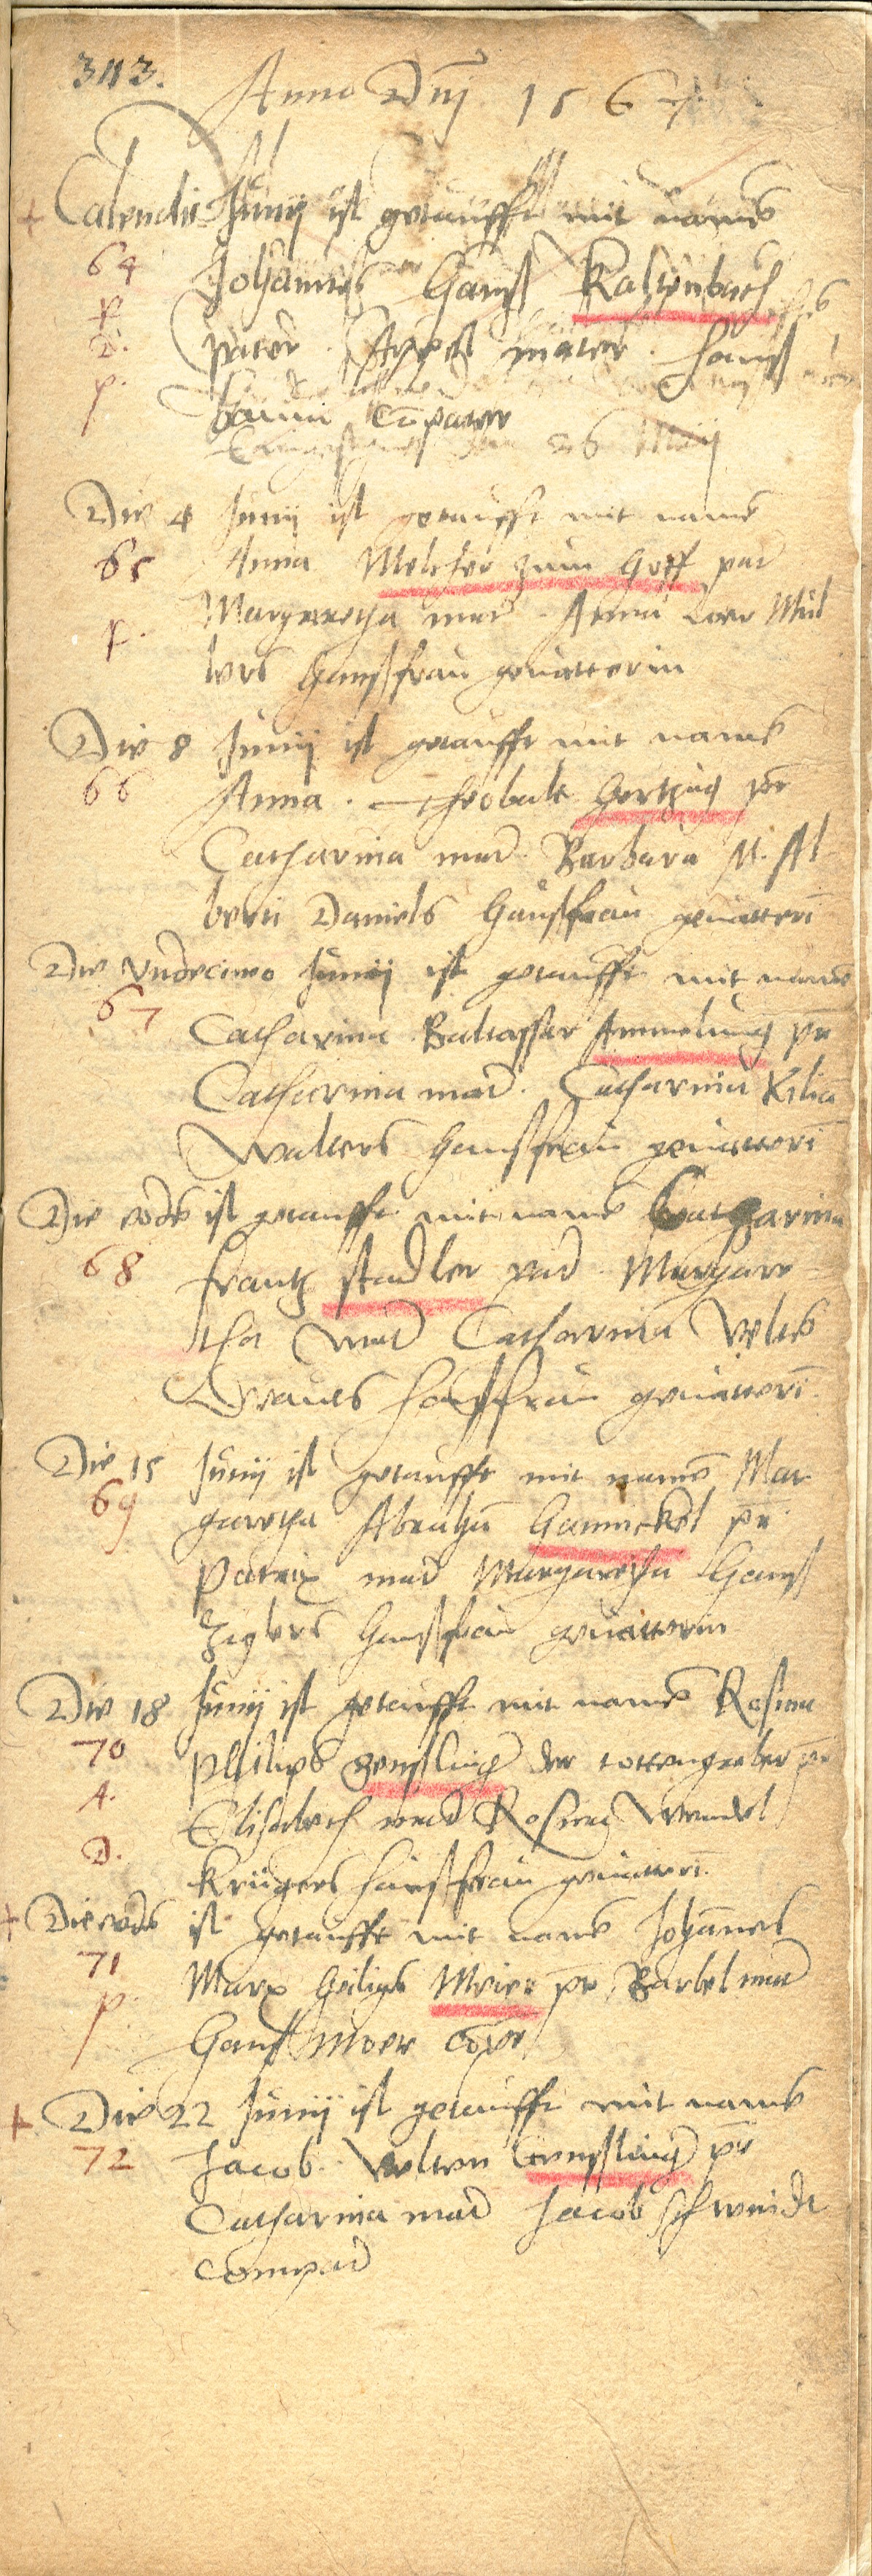 343.
Anno Dnj 1567.
Calendis Junij ist getaufft mit name
64 Johannes Hanß Kaltenbach
p. pater. Agnes mater. Hanß
p. baum Cōpater
26 Maij
Die 4 Junij ist getaufft mit name
65 Anna Melcher zum Hoff pad
Margaretha mad. Anna Mül
p. lers Haußfrau gevatterin
Die 8 Junij ist getaufft mit name
66 Anna. Theobalt Hertzug pr
Catharina mad. Barbara M. Al
berti Daniels haußfrau gevatterī
Die Vndecimo Junij ist getaufft mit name
67 Catharina Baltasser Ammelung pr
Catharina mad. Catharina Kiliā
Walters haußfrau gevatterī
Die eodē ist getaufft mit name Catharina
68 Frantz Stadler pad. Margare
tha mad Catharina Veltes
haußfrau gevatterī
Die 15 Junij ist getaufft mit name Mar
69 garetha Abrahā Hannickel pr
Patrix mad Margaretha Hanß
Zieglers Haußfrau gevatterin
Die 18 Junij ist getaufft mit name Rosina
70 Philips Genßling der tottengreber pr
A. Elisabeth mad Rosina Wendel
D. Krügers haußfrau gevatterī
Die eodē ist getaufft mit name Johānes
71 Marx Heiligs Meier pr Barbel mad
p. Hanß Moer cōpr
Die 22 Junij ist getaufft mit name
72 Jacob. Velten Genßling pr
Catharina mad Jacob Schmidt
compad